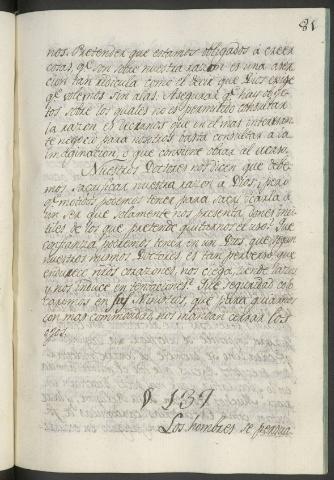 81
nos. Pretender que estamos obligados à creer
cosas, qᵉ son sobre nuestra razon es una aser
cion tan ridicula como el decir que Dios exige
qᵉ volemos sin alas. Asegurar qᵉ hay obje-
tos sobre los quales no es permitido consultar
la razon es decirnos que en el mas interesan
te negocio para nosotros basta consultar a la
imaginacion, o que conviene obrar al acaso.
Nuestros Doctores nos dicen que debe
mos sacrificar nuestra razon à Dios; pero
qᵉ motibos podemos tener para sacrificarla à
un ser que solamente nos presenta dones inu-
tiles de los que pretende quitarnos el uso? Que
confianza podremos tener en un Dios que segun
nuestros mismos Doctores es tan perverso que
endurece los corazones, nos ciega, tiende lazos
y nos induce en tentaciones? Que seguridad
en sus Ministros, que para guiarnos
con mas commodidad, nos mandan cerrar los
ojos.
§ 137
Los hombres se persua